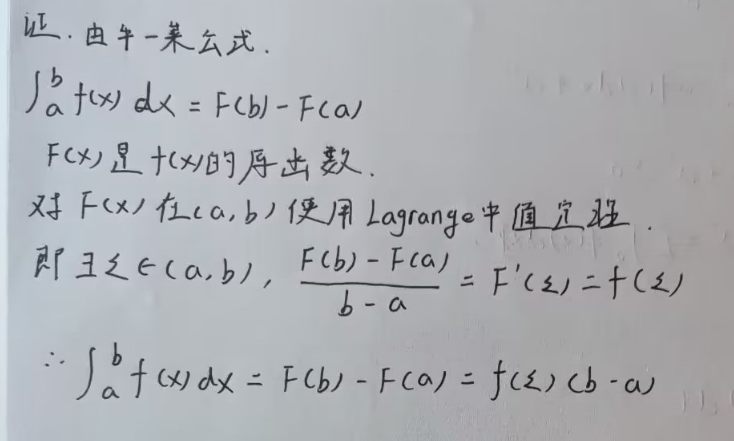 证.由牛一莱公式.
∫ₐᵇ f(x) dx = F(b) - F(a)
F(x)是f(x)的原函数.
对F(x)在(a,b)使用Lagrange中值定理.
即∃ξ∈(a,b), (F(b) - F(a))/(b - a) = F'(ξ) = f(ξ)
∴ ∫ₐᵇ f(x) dx = F(b) - F(a) = f(ξ)(b - a)